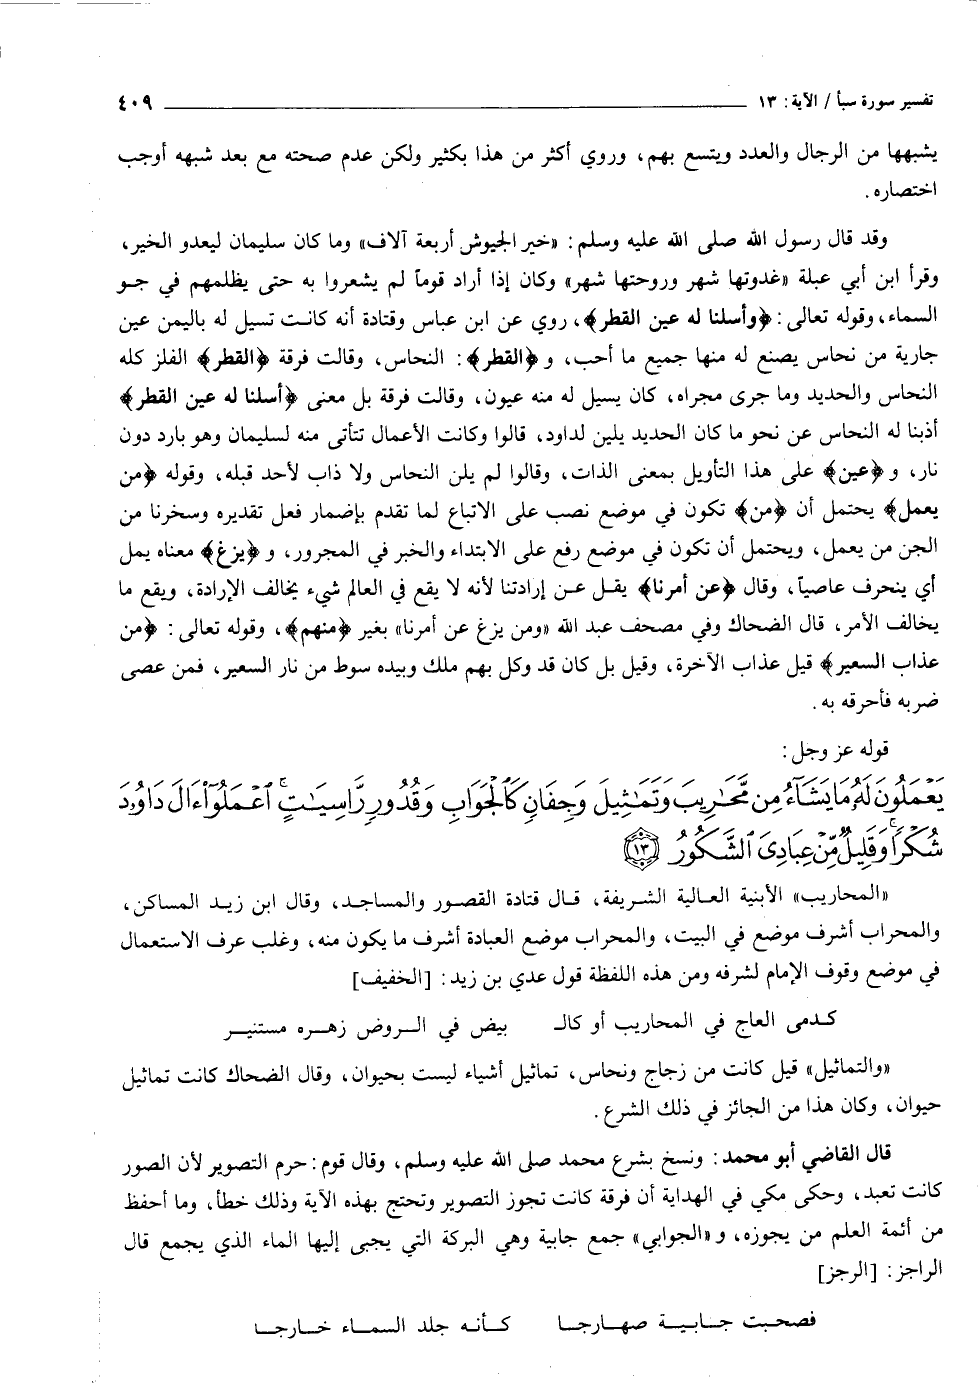 تفسير سورة سبأ / الآية: ١٣ ٤٠٩
يشبهها من الرجال والعدد ويتسع بهم، وروي أكثر من هذا بكثير ولكن عدم صحته مع بعد شبهه أوجب
اختصاره.
وقد قال رسول الله صلى الله عليه وسلم: «خير الجيوش أربعة آلاف» وما كان سليمان ليعدو الخير،
وقرأ ابن أبي عبلة «غدوتها شهر وروحتها شهر» وكان إذا أراد قوماً لم يشعروا به حتى يظلمهم في جـو
السماء، وقوله تعالى: ﴿وأسلنا له عين القطر﴾، روي عن ابن عباس وقتادة أنه كانت تسيل له باليمن عين
جارية من نحاس يصنع له منها جميع ما أحب، و ﴿القطر﴾: النحاس، وقالت فرقة ﴿القطر﴾ الفلز كله
النحاس والحديد وما جرى مجراه، كان يسيل له منه عيون، وقالت فرقة بل معنى ﴿أسلنا له عين القطر﴾
أذبنا له النحاس عن نحو ما كان الحديد يلين لداود، قالوا وكانت الأعمال تتأتى منه لسليمان وهو بارد دون
نار، و ﴿عين﴾ على هذا التأويل بمعنى الذات، وقالوا لم يلن النحاس ولا ذاب لأحد قبله، وقوله ﴿من
يعمل﴾ يحتمل أن ﴿من﴾ تكون في موضع نصب على الاتباع لما تقدم بإضمار فعل تقديره وسخرنا من
الجن من يعمل، ويحتمل أن تكون في موضع رفع على الابتداء والخبر في المجرور، و ﴿يزغ﴾ معناه يمل
أي ينحرف عاصياً، وقال ﴿عن أمرنا﴾ يقـل عـن إرادتنا لأنه لا يقع في العالم شيء يخالف الإرادة، ويقع ما
يخالف الأمر، قال الضحاك وفي مصحف عبد الله «ومن يزغ عن أمرنا» بغير ﴿منهم﴾، وقوله تعالى: ﴿من
عذاب السعير﴾ قيل عذاب الآخرة، وقيل بل كان قد وكل بهم ملك وبيده سوط من نار السعير، فمن عصى
ضربه فأحرقه به.
قوله عز وجل:
يَعْمَلُونَ لَهُۥ مَا يَشَآءُ مِن مَّحَٰرِيبَ وَتَمَٰثِيلَ وَجِفَانٍ كَٱلْجَوَابِ وَقُدُورٍ رَّاسِيَٰتٍ ۚ ٱعْمَلُوٓا۟ ءَالَ دَاوُۥدَ
شُكْرًا ۚ وَقَلِيلٌ مِّنْ عِبَادِىَ ٱلشَّكُورُ ﴿١٣﴾
«المحاريب» الأبنية العـالية الشـريفة، قـال قتادة القصـور والمساجـد، وقال ابن زيـد المساكن،
والمحراب أشرف موضع في البيت، والمحراب موضع العبادة أشرف ما يكون منه، وغلب عرف الاستعمال
في موضع وقوف الإمام لشرفه ومن هذه اللفظة قول عدي بن زيد: [الخفيف]
كـدمى العاج في المحاريب أو كالـ بيض في الـروض زهـره مستنيـر
«والتماثيل» قيل كانت من زجاج ونحاس، تماثيل أشياء ليست بحيوان، وقال الضحاك كانت تماثيل
حيوان، وكان هذا من الجائز في ذلك الشرع.
قال القاضي أبو محمد: ونسخ بشرع محمد صلى الله عليه وسلم، وقال قوم: حرم التصوير لأن الصور
كانت تعبد، وحكى مكي في الهداية أن فرقة كانت تجوز التصوير وتحتج بهذه الآية وذلك خطأ، وما أحفظ
من أئمة العلم من يجوزه، و «الجوابي» جمع جابية وهي البركة التي يجبى إليها الماء الذي يجمع قال
الراجز: [الرجز]
فصحبت جـابيـة صهـارجـا كـأنـه جلد السمـاء خـارجـا